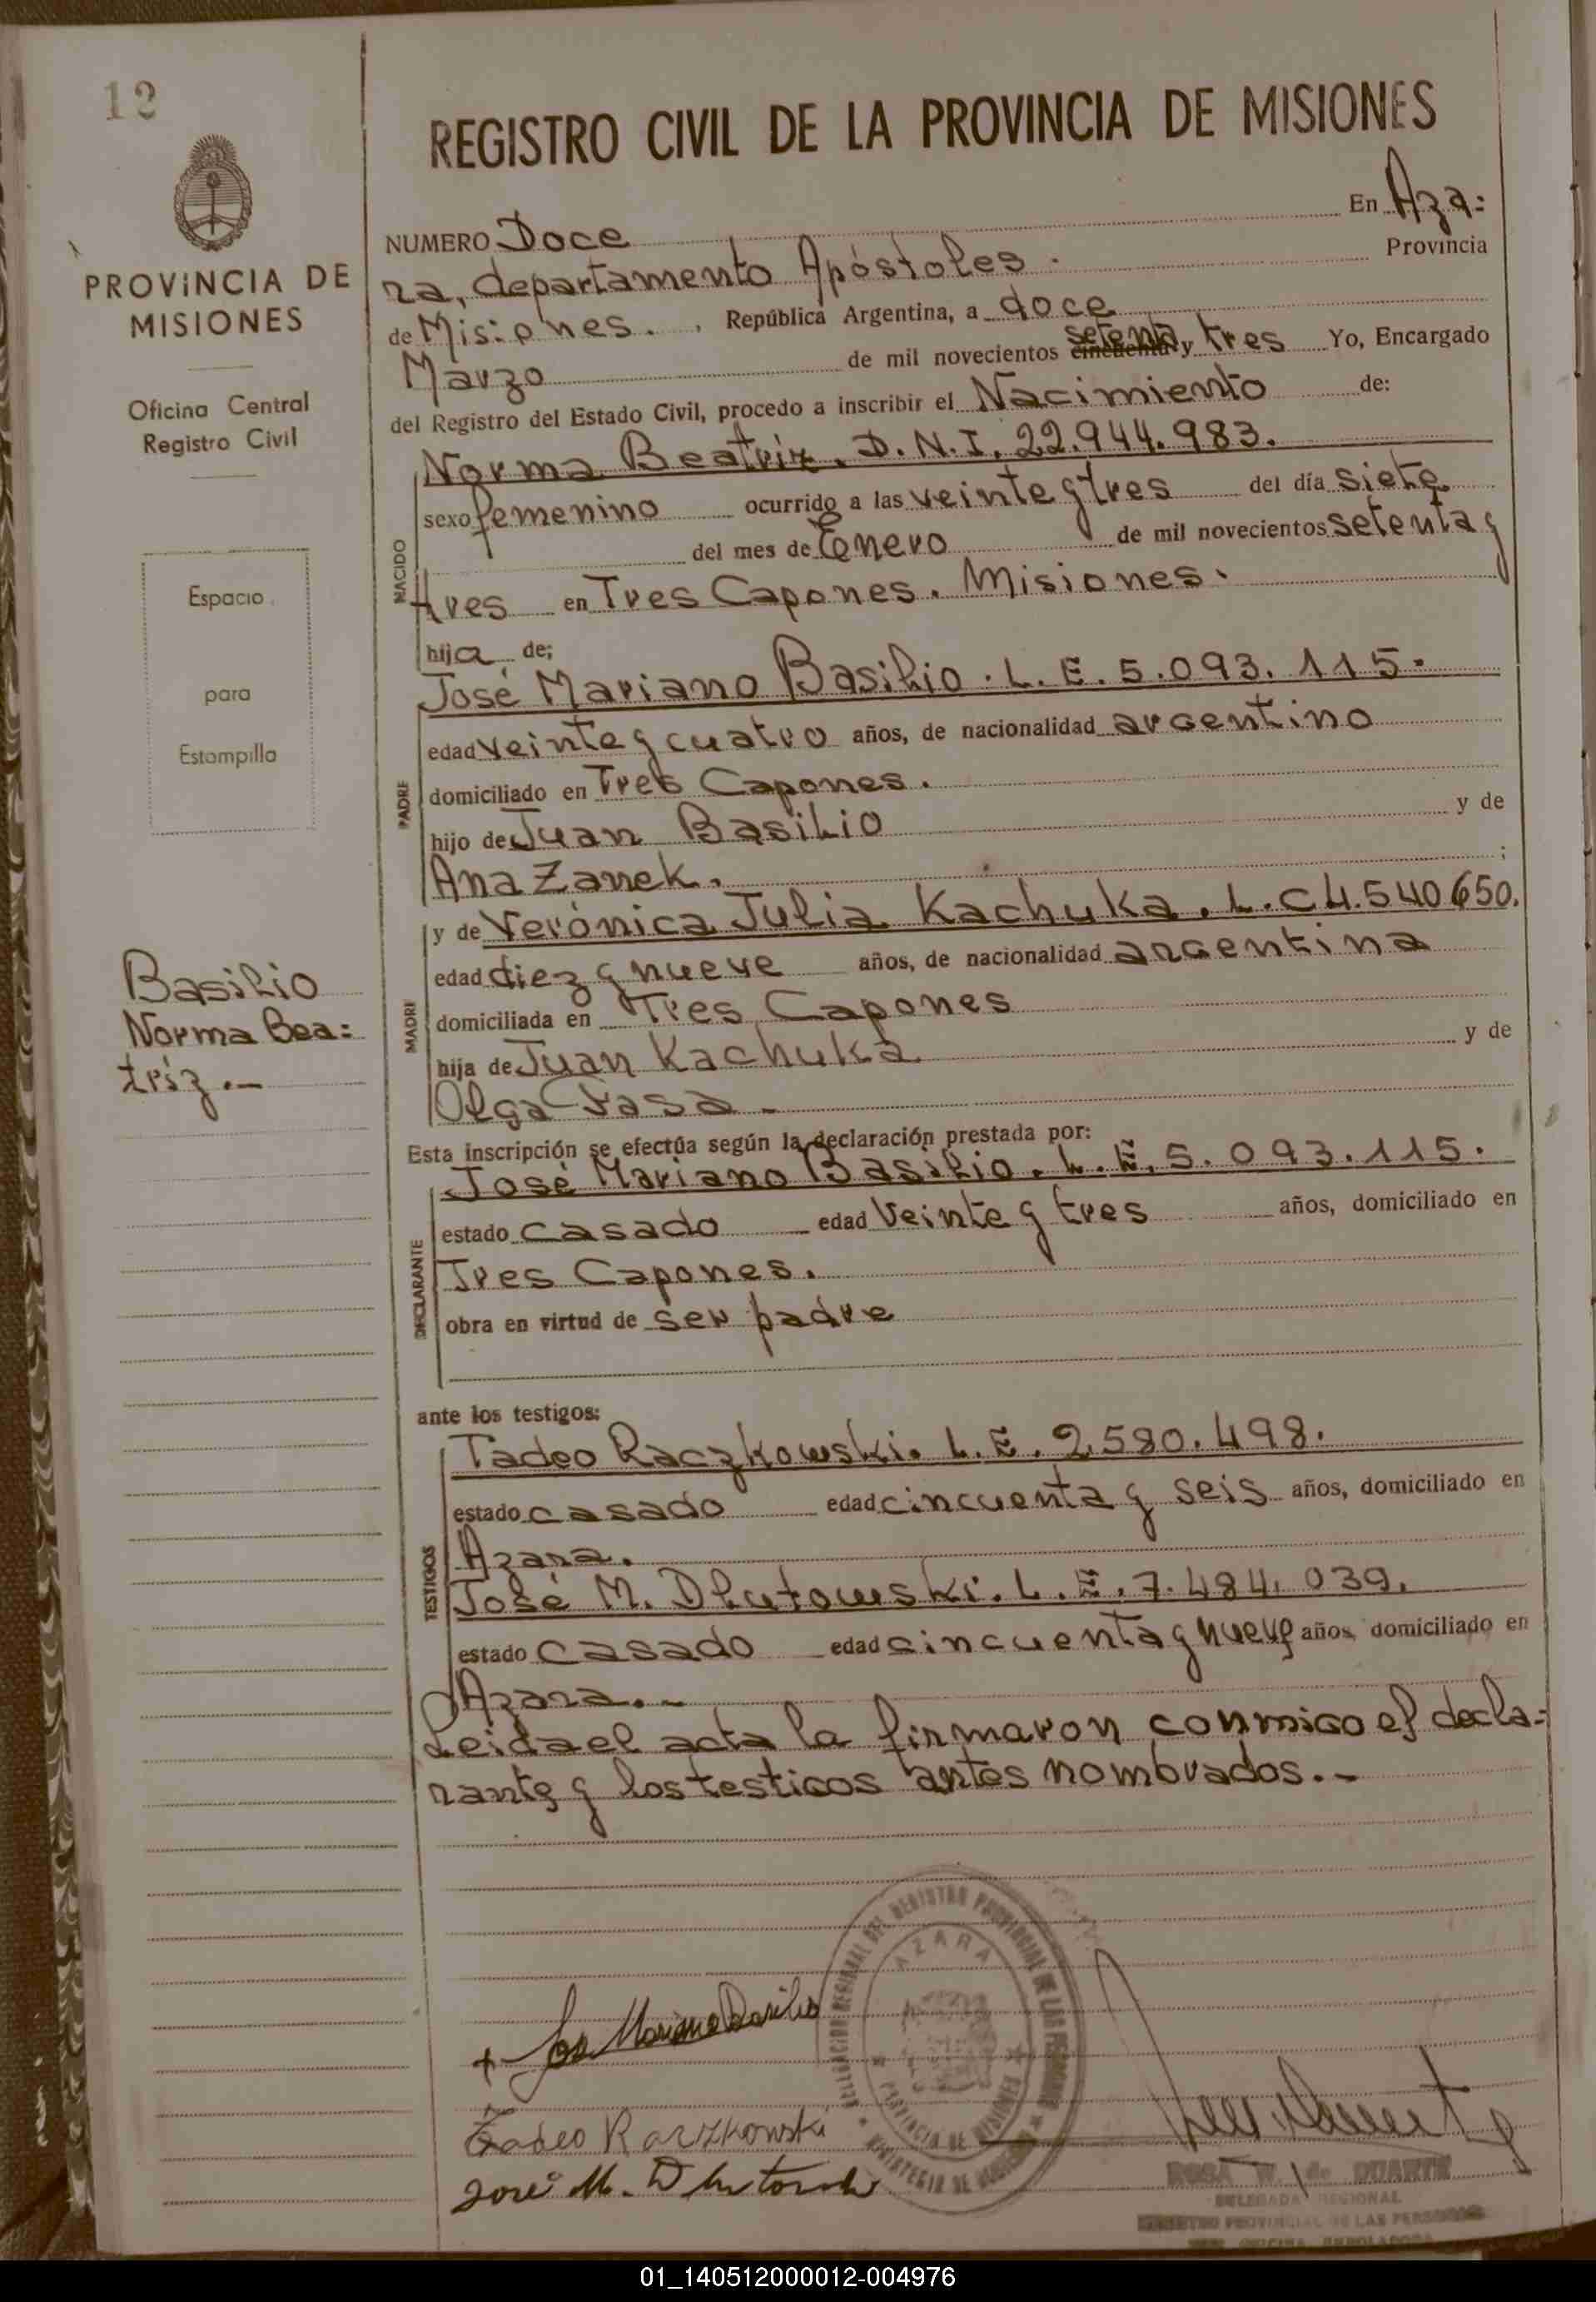 12
PROVINCIA DE
MISIONES
Oficina Central
Registro Civil
Espacio
para
Estampilla
Basilio
Norma Bea=
tríz.-
REGISTRO CIVIL DE LA PROVINCIA DE MISIONES
NUMERO Doce En Aza=
ra, departamento Apóstoles. Provincia
de Misiones. República Argentina, a doce
Marzo de mil novecientos cincuenta setenta y tres Yo, Encargado
del Registro del Estado Civil, procedo a inscribir el Nacimiento de:
Norma Beatriz. D.N.I. 22.944.983.
NACIDO
sexo femenino ocurrido a las veinte y tres del día siete
del mes de Enero de mil novecientos setenta y
tres en Tres Capones. Misiones.
hija de;
José Mariano Basilio. L.E. 5.093.115.
PADRE
edad veinte y cuatro años, de nacionalidad argentino
domiciliado en Tres Capones.
hijo de Juan Basilio y de
Ana Zanek. ;
y de Verónica Julia Kachuka. L.C 4.540650.
MADRE
edad diez y nueve años, de nacionalidad argentina
domiciliada en Tres Capones
hija de Juan Kachuka y de
Olga
Esta inscripción se efectúa según la declaración prestada por:
José Mariano Basilio. L.E. 5.093.115.
DECLARANTE
estado casado edad veinte y tres años, domiciliado en
Tres Capones.
obra en virtud de ser padre
ante los testigos:
Tadeo Raczkowski. L.E. 2.580.498.
TESTIGOS
estado casado edad cincuenta y seis años, domiciliado en
Azara.
José M. Dlutowski. L.E. 7.484.039.
estado casado edad cincuenta y nueve años, domiciliado en
Azara.-
Leida el acta la firmaron conmigo el decla=
rante y los testigos antes nombrados.-
DELEGACION REGIONAL DEL REGISTRO PROVINCIAL DE LAS PERSONAS
AZARA
PROVINCIA DE MISIONES
MINISTERIO DE GOBIERNO
José Mariano Basilio
Tadeo Raczkowski
José M. Dlutowski
ROSA W. de DUARTE
DELEGADA REGIONAL
REGISTRO PROVINCIAL DE LAS PERSONAS
01_140512000012-004976